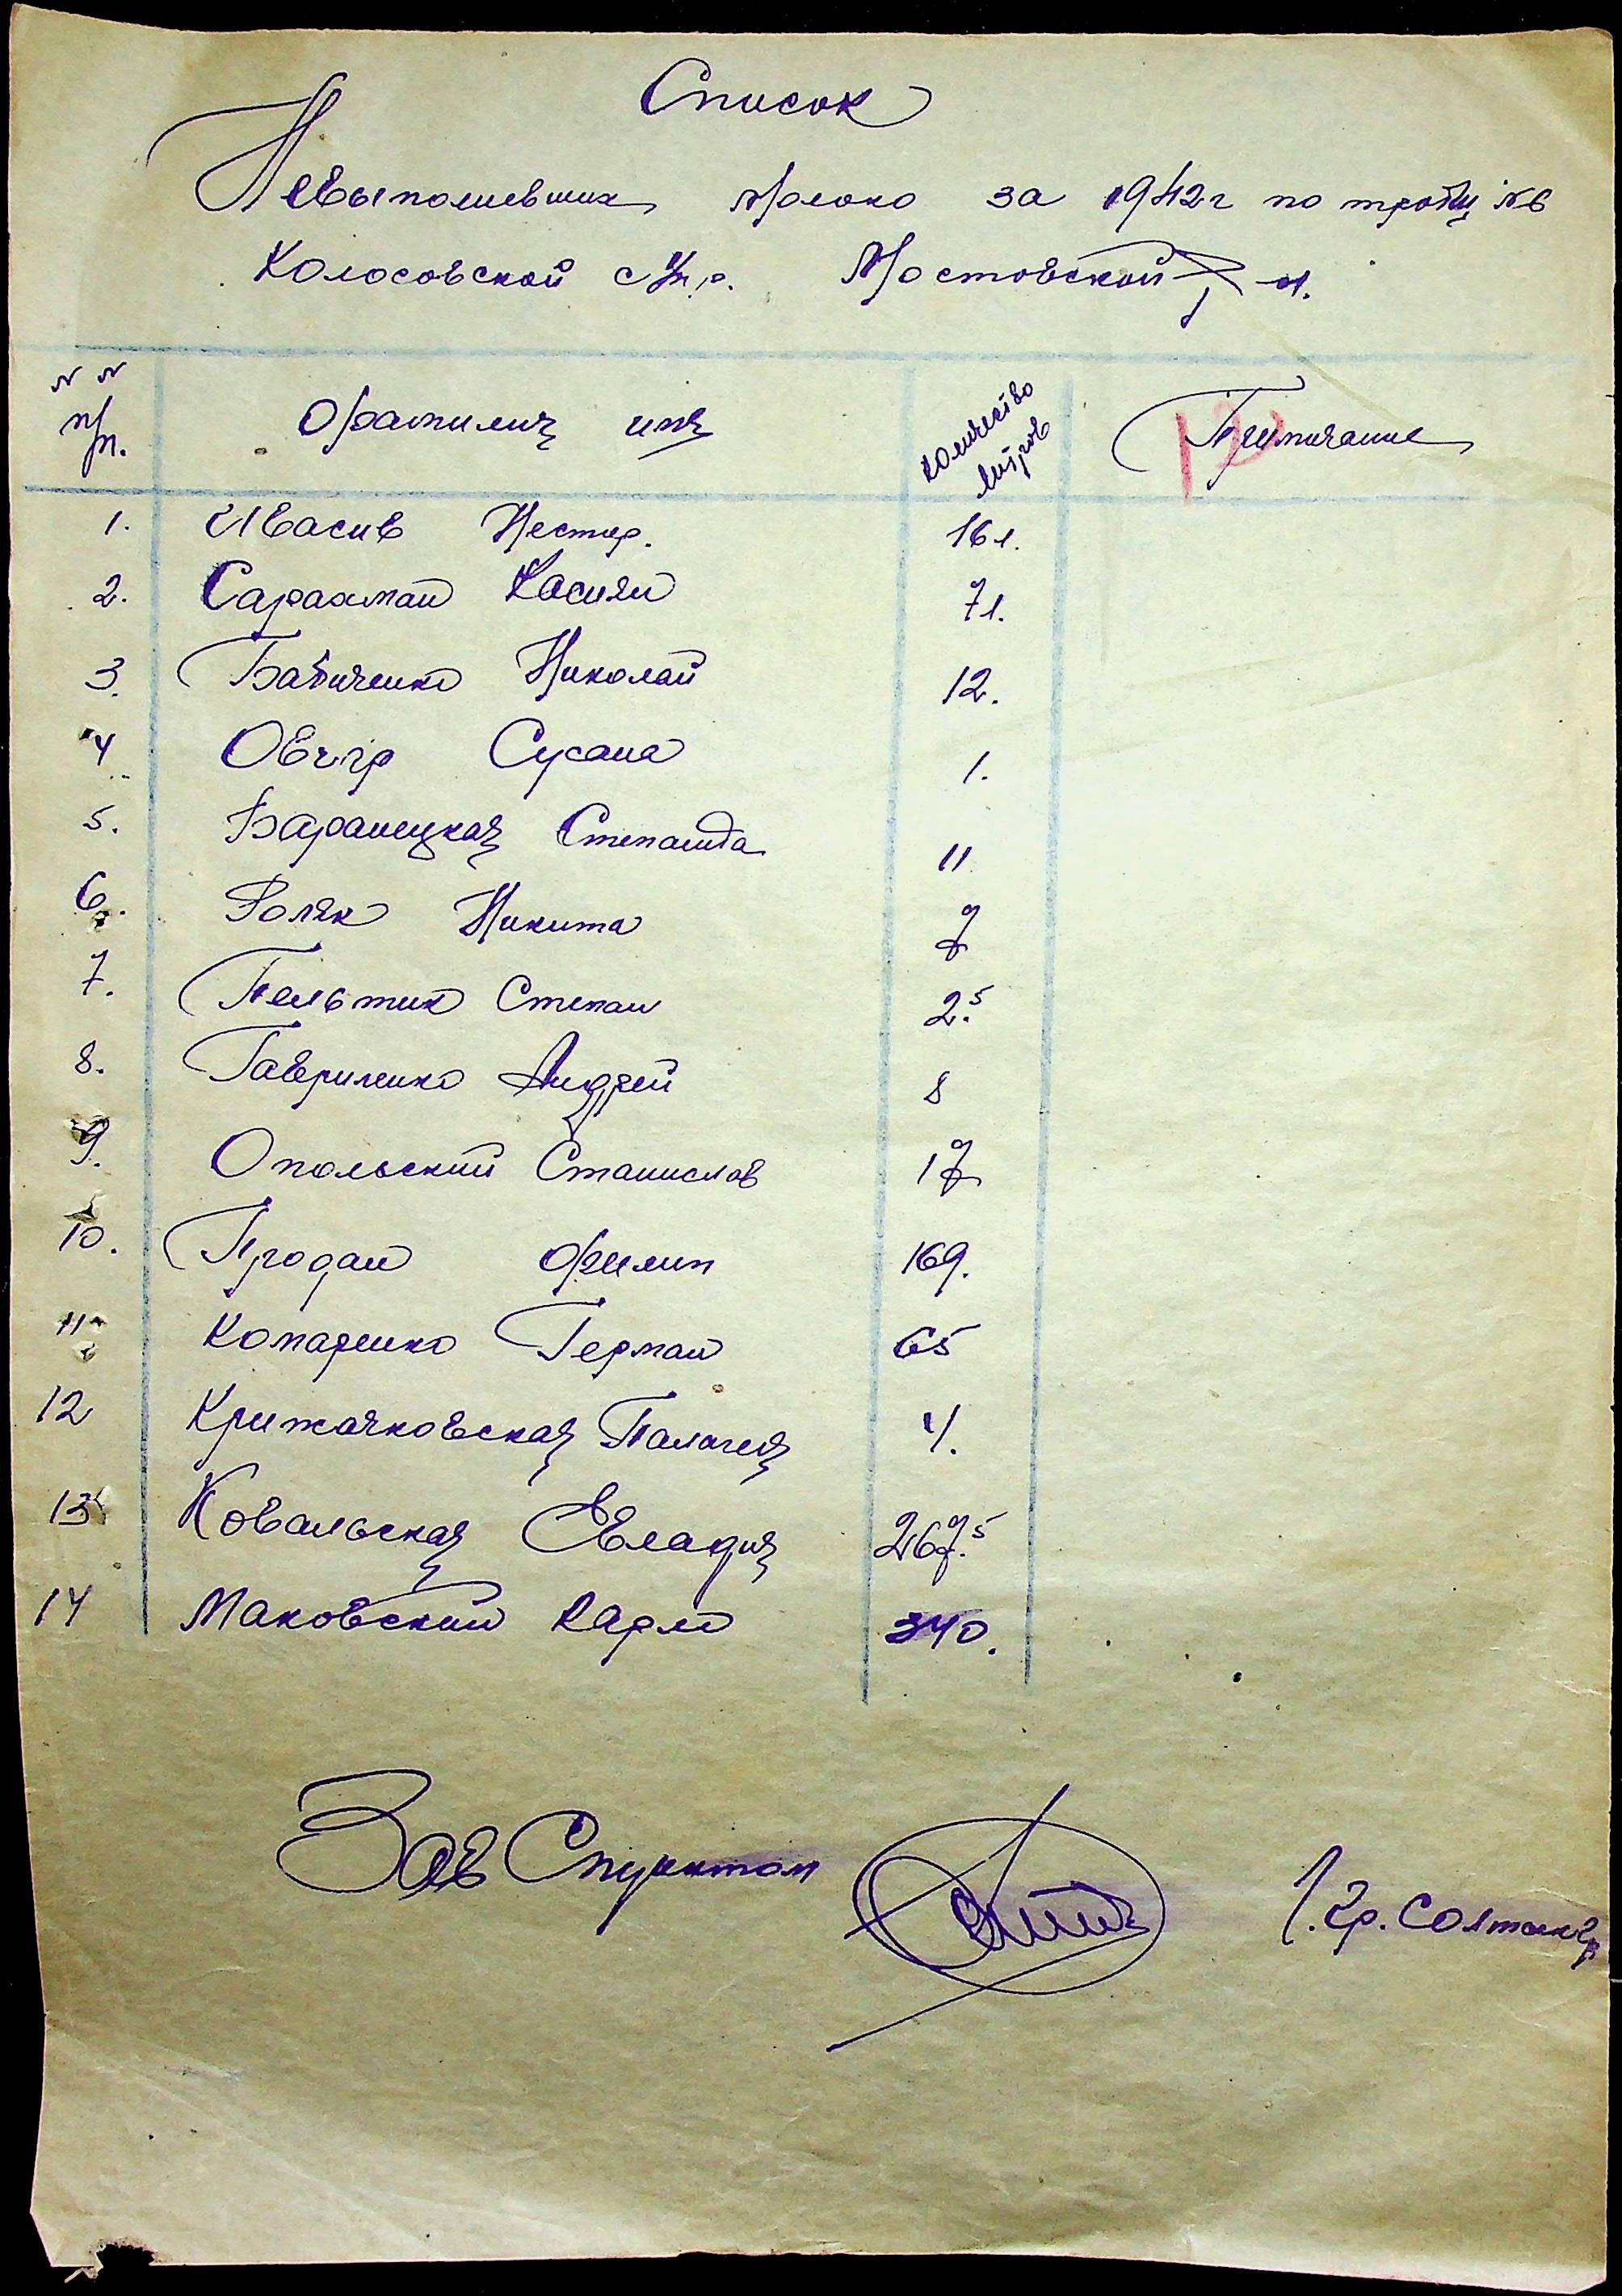 Список
Невыполневших Молоко за 1942г по
Колосовской с/упр. Мостовской р-н.
№ №
п/п.
Фамилия имя
количество
литров
Примичание
1. Ивасив Нестир. 16 л.
2. Сарахман Касиян 7 л.
3. Бабиченко Николай 12.
4 Овчір Сусана 1.
5. Баранецкая Степанида 11
6. Роляк Никита 7
7. Пельтик Степан 2.5
8. Гавриленко Андрей 8
9. Опольский Станислов 17
10. Продан Филип 169.
11 Комаренко Герман 65
12 Крижачковская Палагея 4.
13 Ковальская Евладия 267.5
14 Маковский Карло 340.
Зав Спунктом